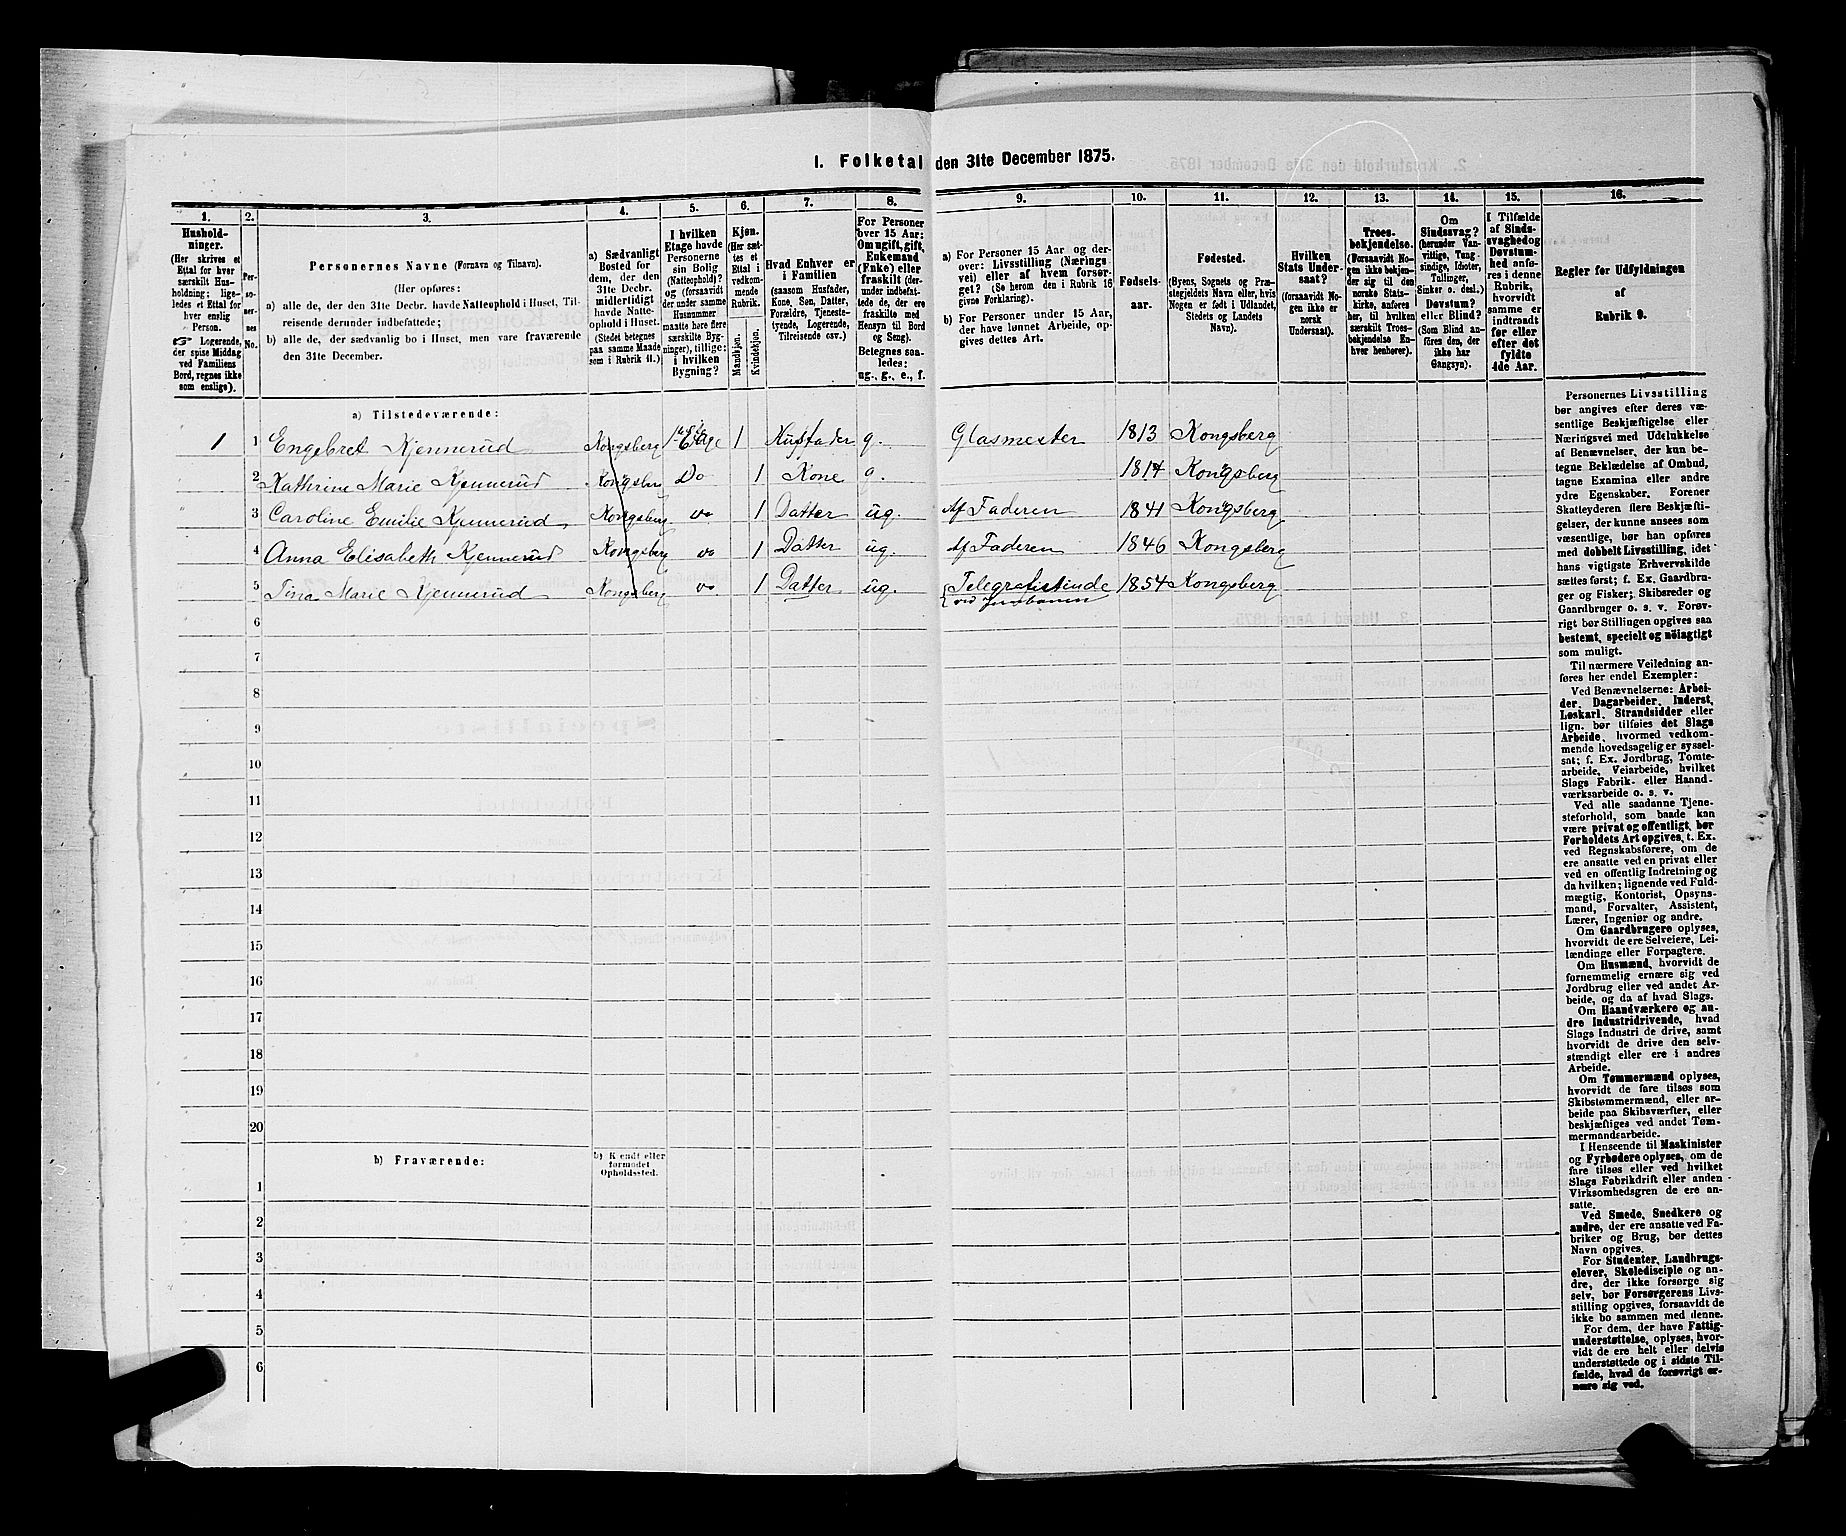 1. Folketal den 31te December 1875.
1. 2. 3. 4. 5. 6. 7. 8. 9. 10. 11. 12. 13. 14. 15. 16.
Hushold-
ninger.
(Her skrives et
Ettal for hver
særskilt Hus-
holdning; lige-
ledes et Ettal for
hver enslig
Person.
☞ Logerende,
der spise Middag
ved Familiens
Bord, regnes ikke
som enslige).
Per-
so-
ner-
nes
No.
Personernes Navne (Fornavn og Tilnavn).
(Her opføres:
a) alle de, der den 31te Decbr. havde Natteophold i Huset, Til-
reisende derunder indbefattede;
b) alle de, der sædvanlig bo i Huset, men vare fraværende
den 31te December.
a) Sædvanligt
Bosted for
dem, der den
31te Decbr.
midlertidigt
havde Natte-
ophold i Huset.
(Stedet betegnes
paa samme Maade
som i Rubrik 11.)
I hvilken
Etage havde
Personerne
sin Bolig
(Natteophold)?
og (forsaavidt
der under samme
Husnummer
maatte høre flere
særskilte Byg-
ninger), tillige:
i hvilken
Bygning?
Kjøn.
(Her sæt-
tes et
Ettal i
vedkom-
mende
Rubrik.
Mandkjøn.
Kvindekjøn.
Hvad Enhver er
i Familien
(saasom Husfader,
Kone, Søn, Datter,
Forældre, Tjeneste-
tyende, Logerende,
Tilreisende osv.).
For Personer
over 15 Aar:
Om ugift, gift,
Enkemand
(Enke) eller
fraskilt
(derunder indbefat-
tede de, der ere
fraskilte med
Hensyn til Bord
og Seng).
Betegnes saa-
ledes:
ug., g., e., f.
a) For Personer 15 Aar og der-
over: Livsstilling (Nærings-
vei) eller af hvem forsør-
get? (Se herom den i Rubrik 16
givne Forklaring).
b) For Personer under 15 Aar,
der have lønnet Arbeide, op-
gives dettes Art.
Fødsels-
aar.
Fødested.
(Byens, Sognets og Præ-
stegjeldets Navn eller, hvis
Nogen er født i Udlandet,
Stedets og Landets
Navn).
Hvilken
Stats Under-
saat?
(forsaavidt No-
gen ikke er
norsk
Undersaat).
Troes-
bekjendelse.
(Forsaavidt No-
gen ikke bekjen-
der sig til den
norske Stats-
kirke, anføres
her, til hvilken
særskilt Troes-
bekjendelse En-
hver henhører).
Om
Sindssvag?
(herunder Van-
vittige, Tung-
sindige, Idioter,
Tullinger,
Sinker o. desl.)
Døvstum?
eller Blind?
(Som Blind an-
føres den, der
ikke har
Gangsyn).
I Tilfælde
af Sinds-
svaghed og
Døvstum-
hed anfø-
res i denne
Rubrik,
hvorvidt
samme er
indtraadt
før eller
efter det
fyldte
4de Aar.
Regler for Udfyldningen
af
Rubrik 9.
a) Tilstedeværende:
1 1 Engebret Kjennerud Kongsberg 1ste Etage 1 Husfader g. Glasmester 1813 Kongsberg
2 Kathrine Marie Kjennerud Kongsberg Do 1 Kone g. 1814 Kongsberg
3 Caroline Emilie Kjennerud Kongsberg do 1 Datter ug. Af Faderen 1841 Kongsberg
4 Anna Elisabeth Kjennerud Kongsberg do 1 Datter ug. Af Faderen 1846 Kongsberg
5 Tina Marie Kjennerud Kongsberg do. 1 Datter ug. Telegrafistinde 1854 Kongsberg
ved Jernbanen
6
7
8
9
10
11
12
13
14
15
16
17
18
19
20
b) Fraværende: b) Kjendt eller
formodet
Opholdssted.
1
2
3
4
5
6
Personernes Livsstilling
bør angives efter deres væ-
sentlige Beskjæftigelse eller
Næringsvei med Udelukkelse
af Benævnelser, der kun be-
tegne Beklædelse af Ombud,
tagne Examina eller andre
ydre Egenskaber. Forener
Skatteyderen flere Beskjæfti-
gelser, der kunne ansees som
væsentlige, bør han opføres
med dobbelt Livsstilling, idet
hans vigtigste Erhvervskilde
sættes først; f. Ex. Gaardbru-
ger og Fisker; Skibsreder og
Gaardbruger o. s. v. Forøv-
rigt bør Stillingen opgives saa
bestemt, specielt og nöiagtigt
som muligt.
Til nærmere Veiledning an-
føres her endel Exempler:
Ved Benævnelserne: Arbei-
der, Dagarbeider, Inderst,
Løskarl, Strandsidder eller
lign. bør tilføies det Slags
Arbeide, hvormed vedkom-
mende hovedsagelig er syssel-
sat; f. Ex. Jordbrug, Tomte-
arbeide, Veiarbeide, hvilket
Slags Fabrik- eller Haand-
værksarbeide o. s. v.
Ved alle saadanne Tjene-
steforhold, som baade kan
være privat og offentligt, bør
Forholdets Art opgives, t. Ex.
ved Regnskabsførere, om de
ere ansatte ved en privat eller
ved en offentlig Indretning og
da hvilken; lignende ved Fuld-
mægtig, Kontorist, Opsyns-
mand, Forvalter, Assistent,
Lærer, Ingeniør og andre.
Om Gaardbrugere oplyses,
hvorvidt de ere Selveiere, Lei-
lændinge eller Forpagtere.
Om Husmænd, hvorvidt de
fornemmelig ernære sig ved
Jordbrug eller ved andet Ar-
beide, og da af hvad Slags.
Om Haandværkere og an-
dre Industridrivende, hvad
Slags Industri de drive, samt
hvorvidt de drive den selv-
stændigt eller ere i andres
Arbeide.
Om Tømmermænd oplyses,
hvorvidt de fare tilsøs som
Skibstømmermænd, eller ar-
beide paa Skibsværfter, eller
beskjæftiges ved andet Tøm-
mermandsarbeide.
I Henseende til Maskinister
og Fyrbødere oplyses, om de
fare tilsøs eller ved hvilket
Slags Fabrikdrift eller anden
Virksomhedsgren de ere an-
satte.
Ved Smede, Snedkere og
andre, der ere ansatte ved Fa-
briker og Brug, bør dettes
Navn opgives.
For Studenter, Landbrugs-
elever, Skoledisciple og an-
dre, der ikke forsørge sig
selv, bør Forsørgerens Livs-
stilling opgives, forsaavidt de
ikke bo sammen med denne.
For dem, der have Fattig-
understøttelse, oplyses, hvor-
vidt de ere helt eller delvis
understøttede og i sidste Til-
fælde, hvad de forøvrigt er-
nære sig ved.